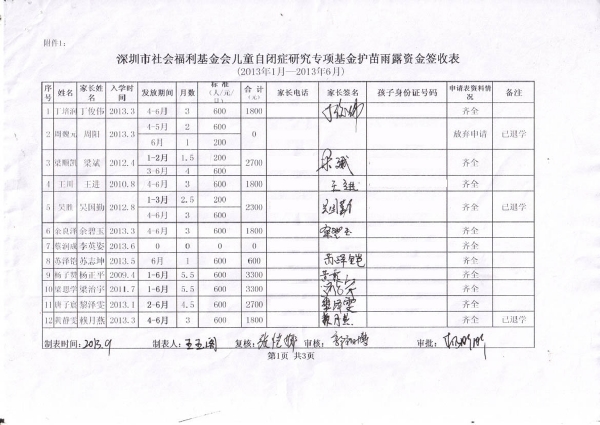 附件1:
深圳市社会福利基金会儿童自闭症研究专项基金护苗雨露资金签收表
(2013年1月—2013年6月)
序号 姓名 家长姓名 入学时间 发放期间 月数 标准(人/元/) 合计(元) 家长电话 家长签名 孩子身份证号码 申请表资料情况 备注
1 丁培润 丁俊伟 2013.3 4-6月 3 600 1800 齐全
2 周馥元 周阳 2013.3 4-5月 2 600 0 放弃申请 已退学
6月 1 200
3 梁顺凯 梁斌 2012.4 1-2月 1.5 200 2700 梁斌 齐全
3-6月 4 600
4 王川 王进 2010.8 4-6月 3 600 1800 王进 齐全
5 吴胜 吴国勤 2012.8 1-3月 2.5 200 2300 吴国勤 齐全 已退学
4-6月 3 600
6 余良洋 余碧玉 2013.3 4-6月 3 600 1800 齐全
7 蔡润成 李英姿 2013.6 0 0 0 0 齐全
8 苏泽铠 苏志坤 2013.5 6月 1 600 600 齐全
9 杨子贤 杨正平 2009.4 1-6月 5.5 600 3300 齐全
10 梁思宇 梁治宇 2011.7 1-6月 5.5 600 3300 齐全
11 唐子宸 黎泽雯 2013.1 2-6月 4.5 600 2700 黎泽雯 齐全
12 黄静雯 赖月燕 2013.3 4-6月 3 600 1800 赖月燕 齐全 已退学
制表时间: 2013.9 制表人: 复核: 审核: 审批:
第1页 共3页